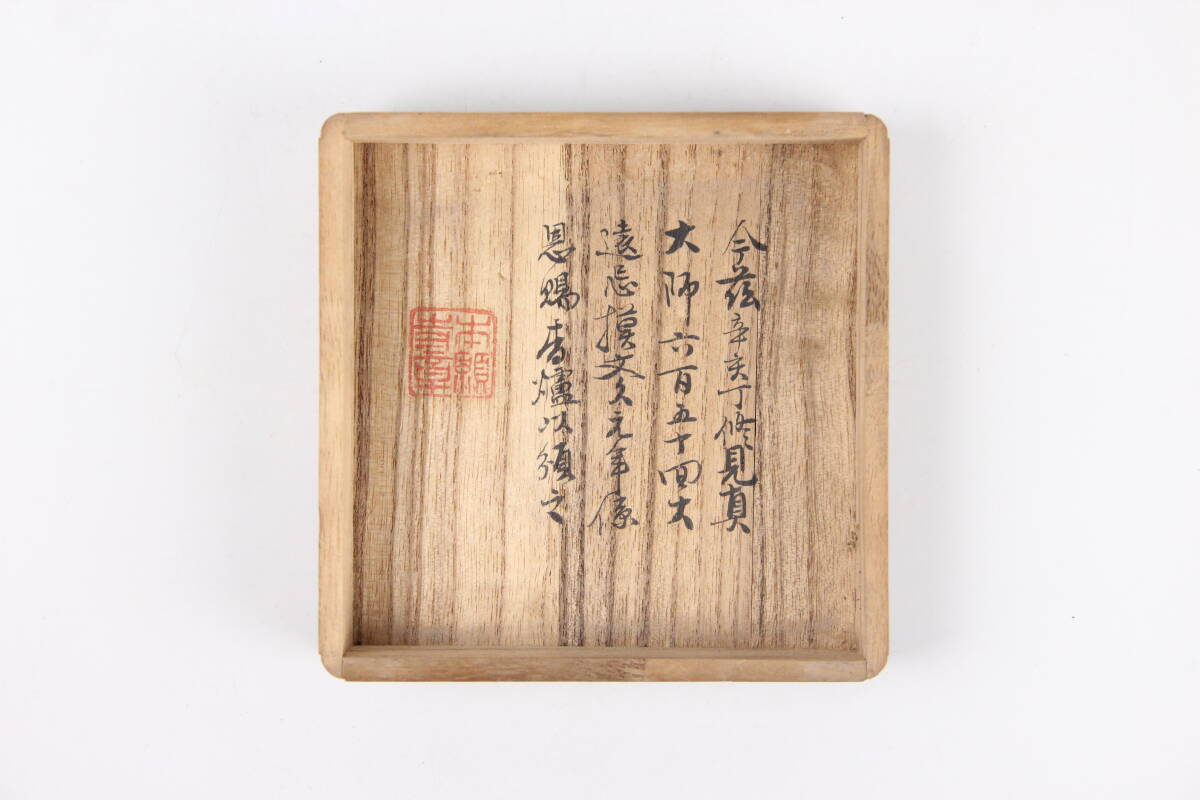 今茲辛亥丁修見真
大師六百五十回大
遠忌摸文久元年係
恩賜香爐以頒之
本願
寺章